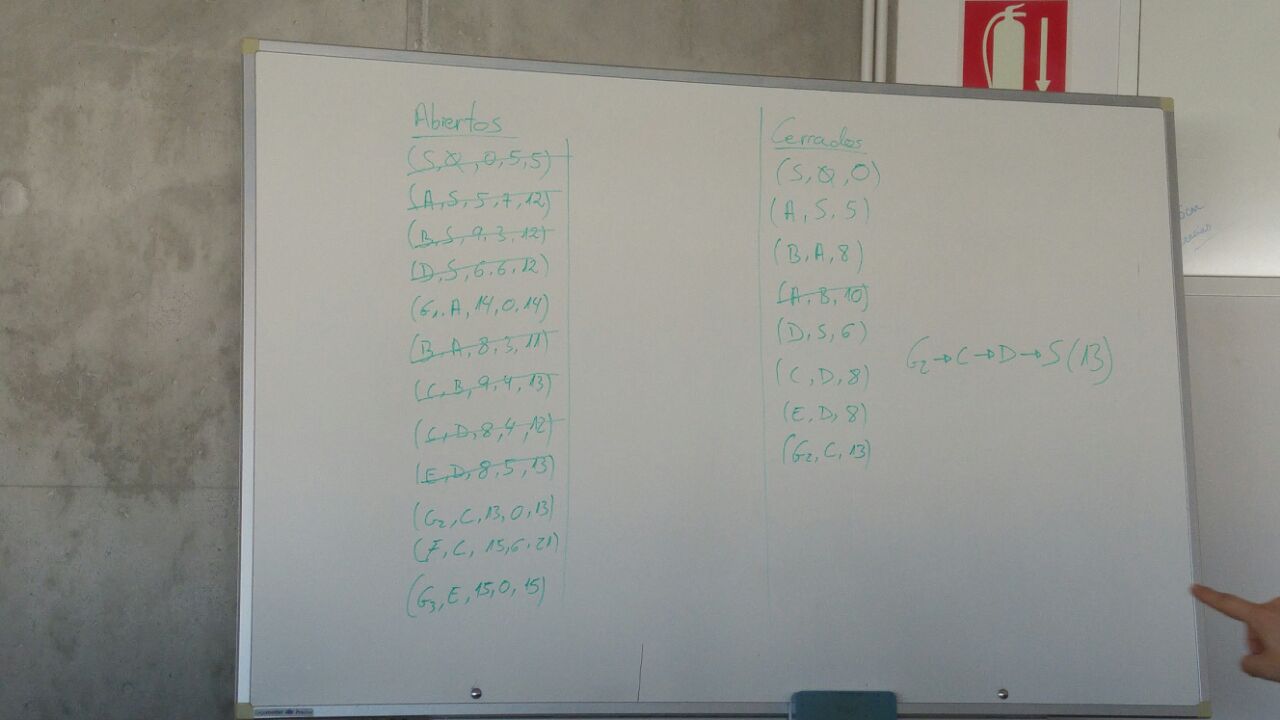 Abiertos
(S, Ø, 0, 5, 5)
(A, S, 5, 7, 12)
(B, S, 9, 3, 12)
(D, S, 6, 6, 12)
(G₁, A, 14, 0, 14)
(B, A, 8, 3, 11)
(C, B, 9, 4, 13)
(C, D, 8, 4, 12)
(E, D, 8, 5, 13)
(G₂, C, 13, 0, 13)
(F, C, 15, 6, 21)
(G₃, E, 15, 0, 15)
Cerrados
(S, Ø, 0)
(A, S, 5)
(B, A, 8)
(A, B, 10)
(D, S, 6)
(C, D, 8)
(E, D, 8)
(G₂, C, 13)
G₂→C→D→S (13)